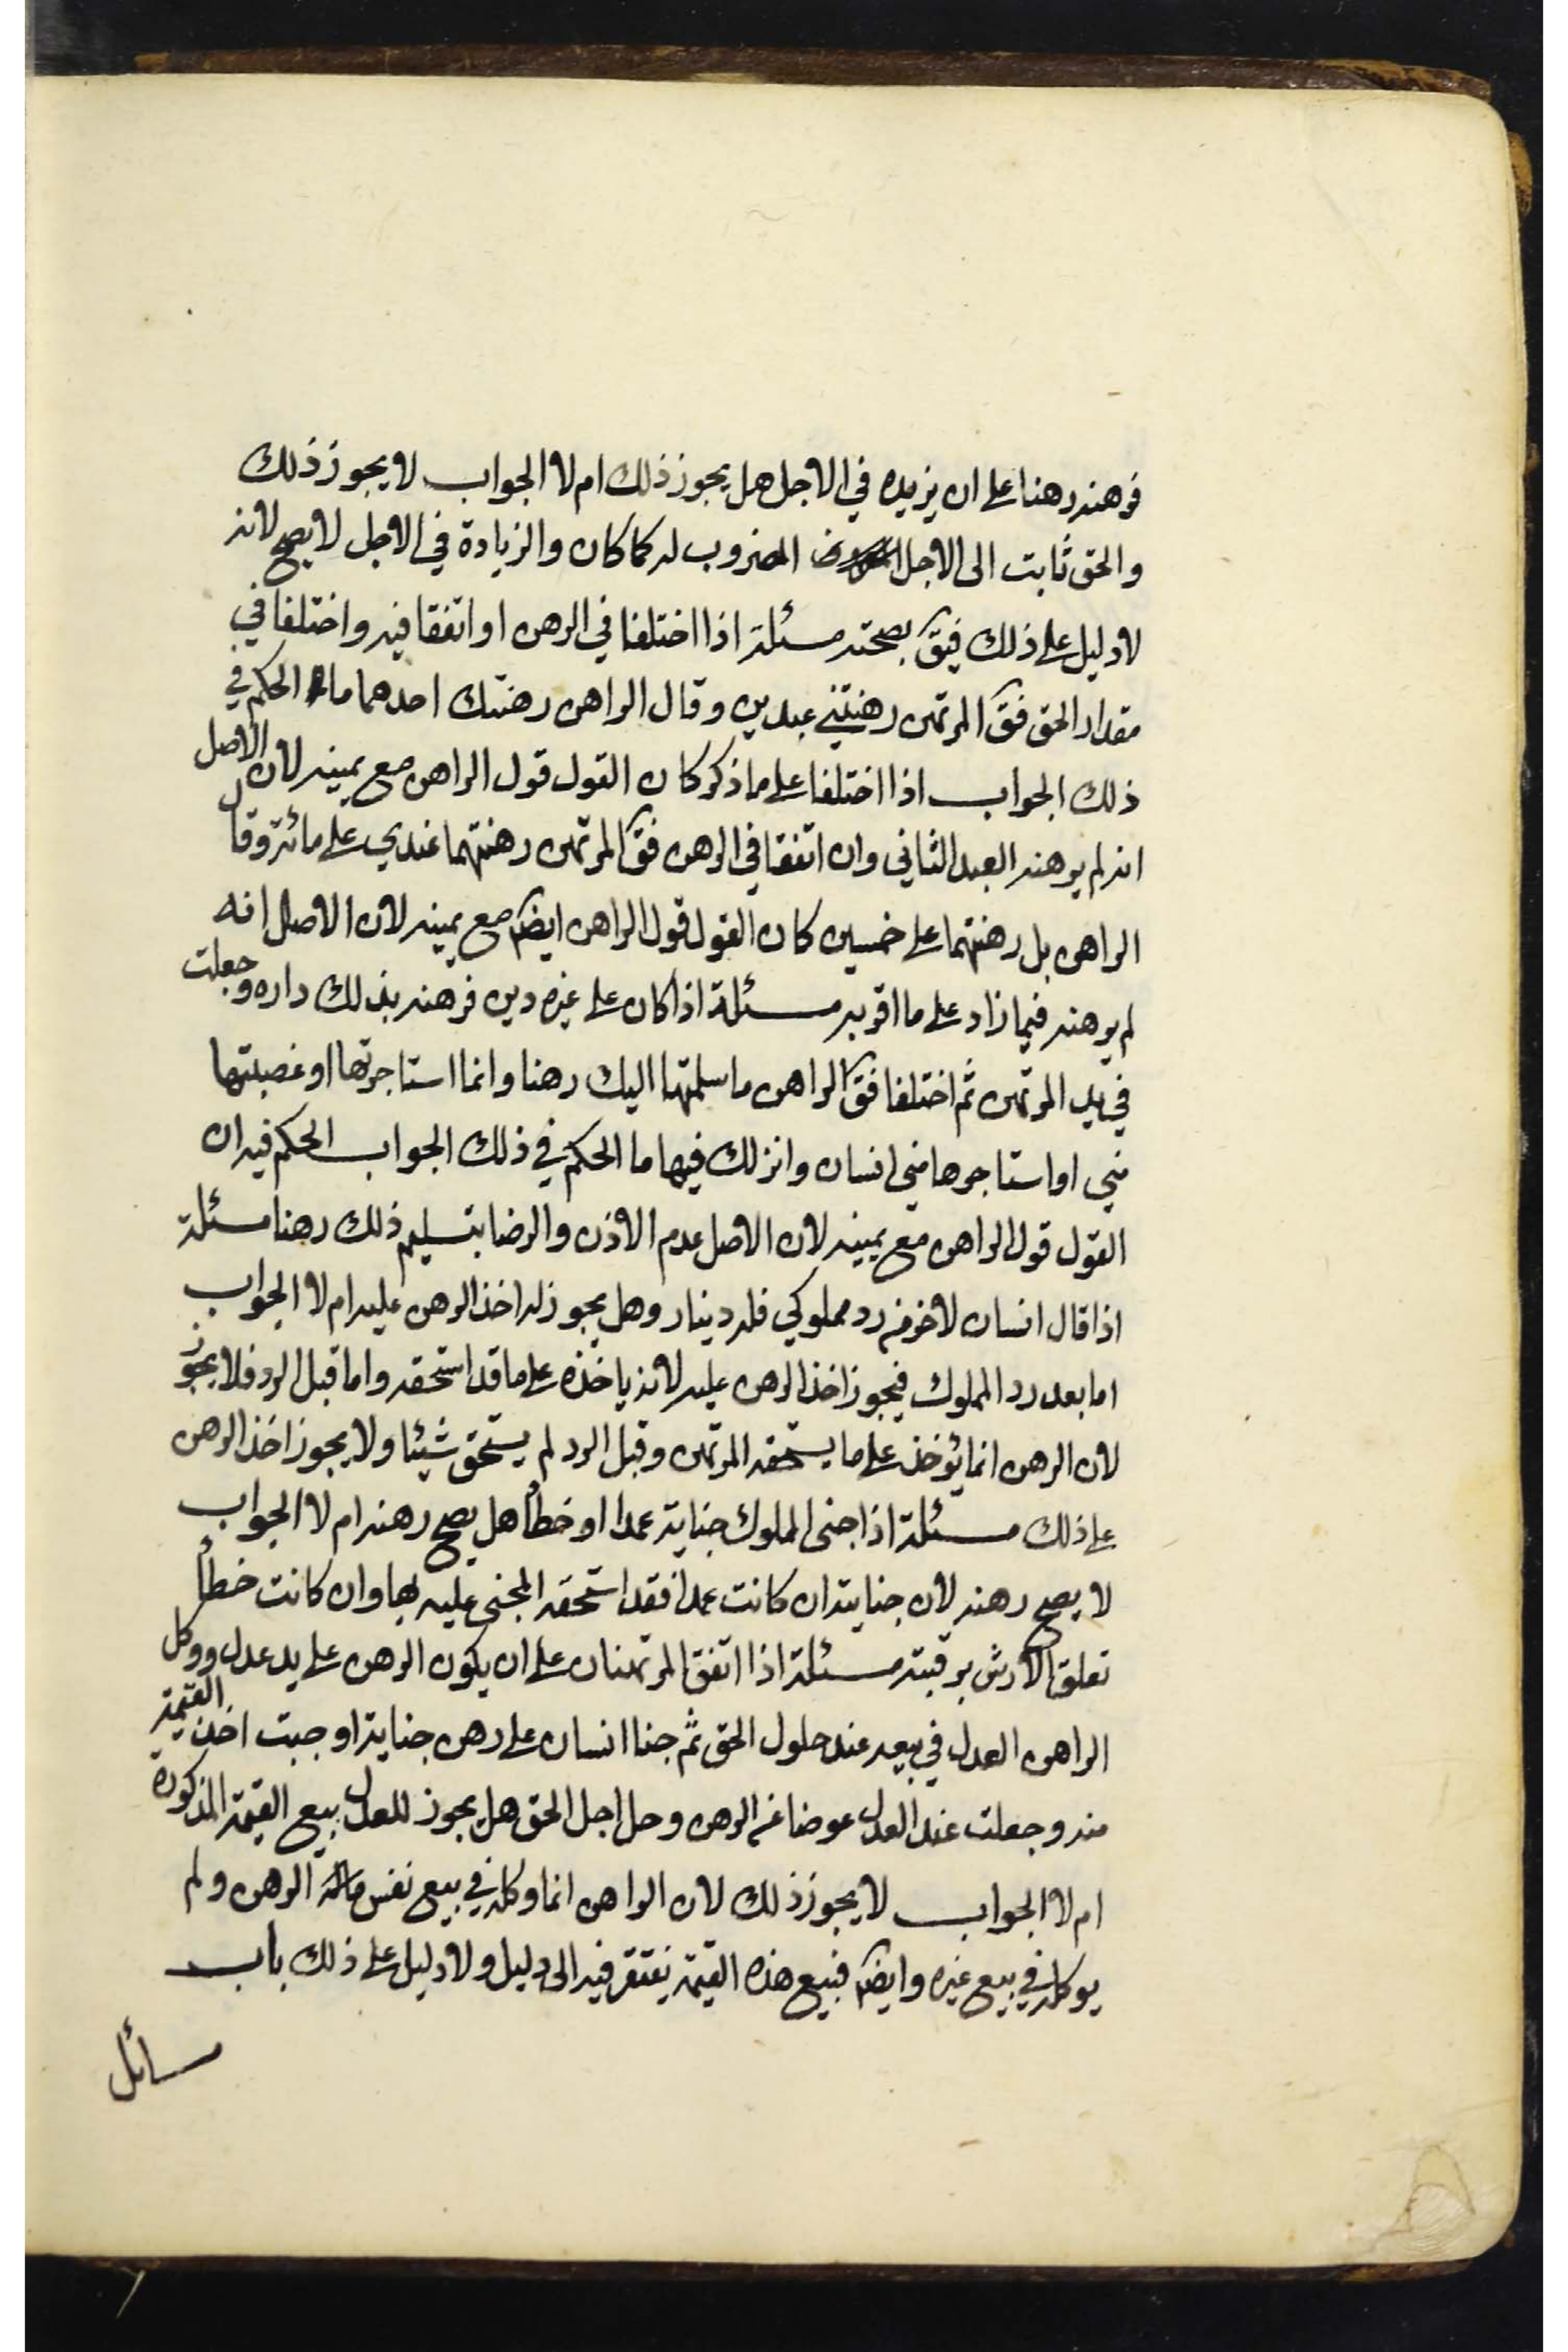 فرهنه رهنا على ان يزيده في الاجل هل يجوز ذلك ام لا الجواب لا يجوز ذلك
والحق ثابت الى الاجل المضروب له كما كان والزيادة في الاجل لا يصح لانه
لا دليل على ذلك فيق بصحته مسئلة اذا اختلفا في الرهن او اتفقا فيه واختلفا في
مقدار الحق فق المرتهن رهنتني عبدين وقال الراهن رهنتك احدهما ما الحكم في
ذلك الجواب اذا اختلفا على ما ذكر كان القول قول الراهن مع يمينه لان الاصل
انه لم يرهنه العبد الثاني وان اتفقا في الرهن فق المرتهن رهنتهما عندي على مائة وقال
الراهن بل رهنتهما على خمسين كان القول قول الراهن ايضا مع يمينه لان الاصل انه
لم يرهنه فيما زاد على ما اقر به مسئلة اذا كان على غيره دين فرهنه بذلك داره وجعلت
في يد المرتهن ثم اختلفا فق الراهن ما سلمتها اليك رهنا وانما استاجرتها او غصبتها
مني او استاجرها مني انسان وانزلك فيها ما الحكم في ذلك الجواب الحكم فيه ان
القول قول الراهن مع يمينه لان الاصل عدم الاذن والرضا بتسليم ذلك رهنا مسئلة
اذا قال انسان لاخر من رد مملوكي فله دينار وهل يجوز له اخذ الرهن عليه ام لا الجواب
اما بعد رد المملوك فيجوز اخذ الرهن عليه لانه ياخذه على ما قد استحقه واما قبل الرد فلا يجوز
لان الرهن انما يؤخذ على ما يستحقه المرتهن وقبل الرد لم يستحق شيئا ولا يجوز اخذ الرهن
على ذلك مسئلة اذا جنى المملوك جناية عمدا او خطأ هل يصح رهنه ام لا الجواب
لا يصح رهنه لان جنايته ان كانت عمدا فقد استحقه المجنى عليه بها وان كانت خطأ
تعلق الارش برقبته مسئلة اذا اتفق المرتهنان على ان يكون الرهن على يد عدل ووكل
الراهن العدل في بيعه عند حلول الحق ثم جنا انسان على رهن جناية اوجبت اخذ القيمة
منه وجعلت عند العدل عوضا عن الرهن وحل اجل الحق هل يجوز للعدل بيع القيمة المذكورة
ام لا الجواب لا يجوز ذلك لان الراهن انما وكله في بيع نفس الرهن ولم
يوكله في بيع غيره وايضا فبيع هذه القيمة يفتقر فيه الى دليل ولا دليل على ذلك باب
مسائل